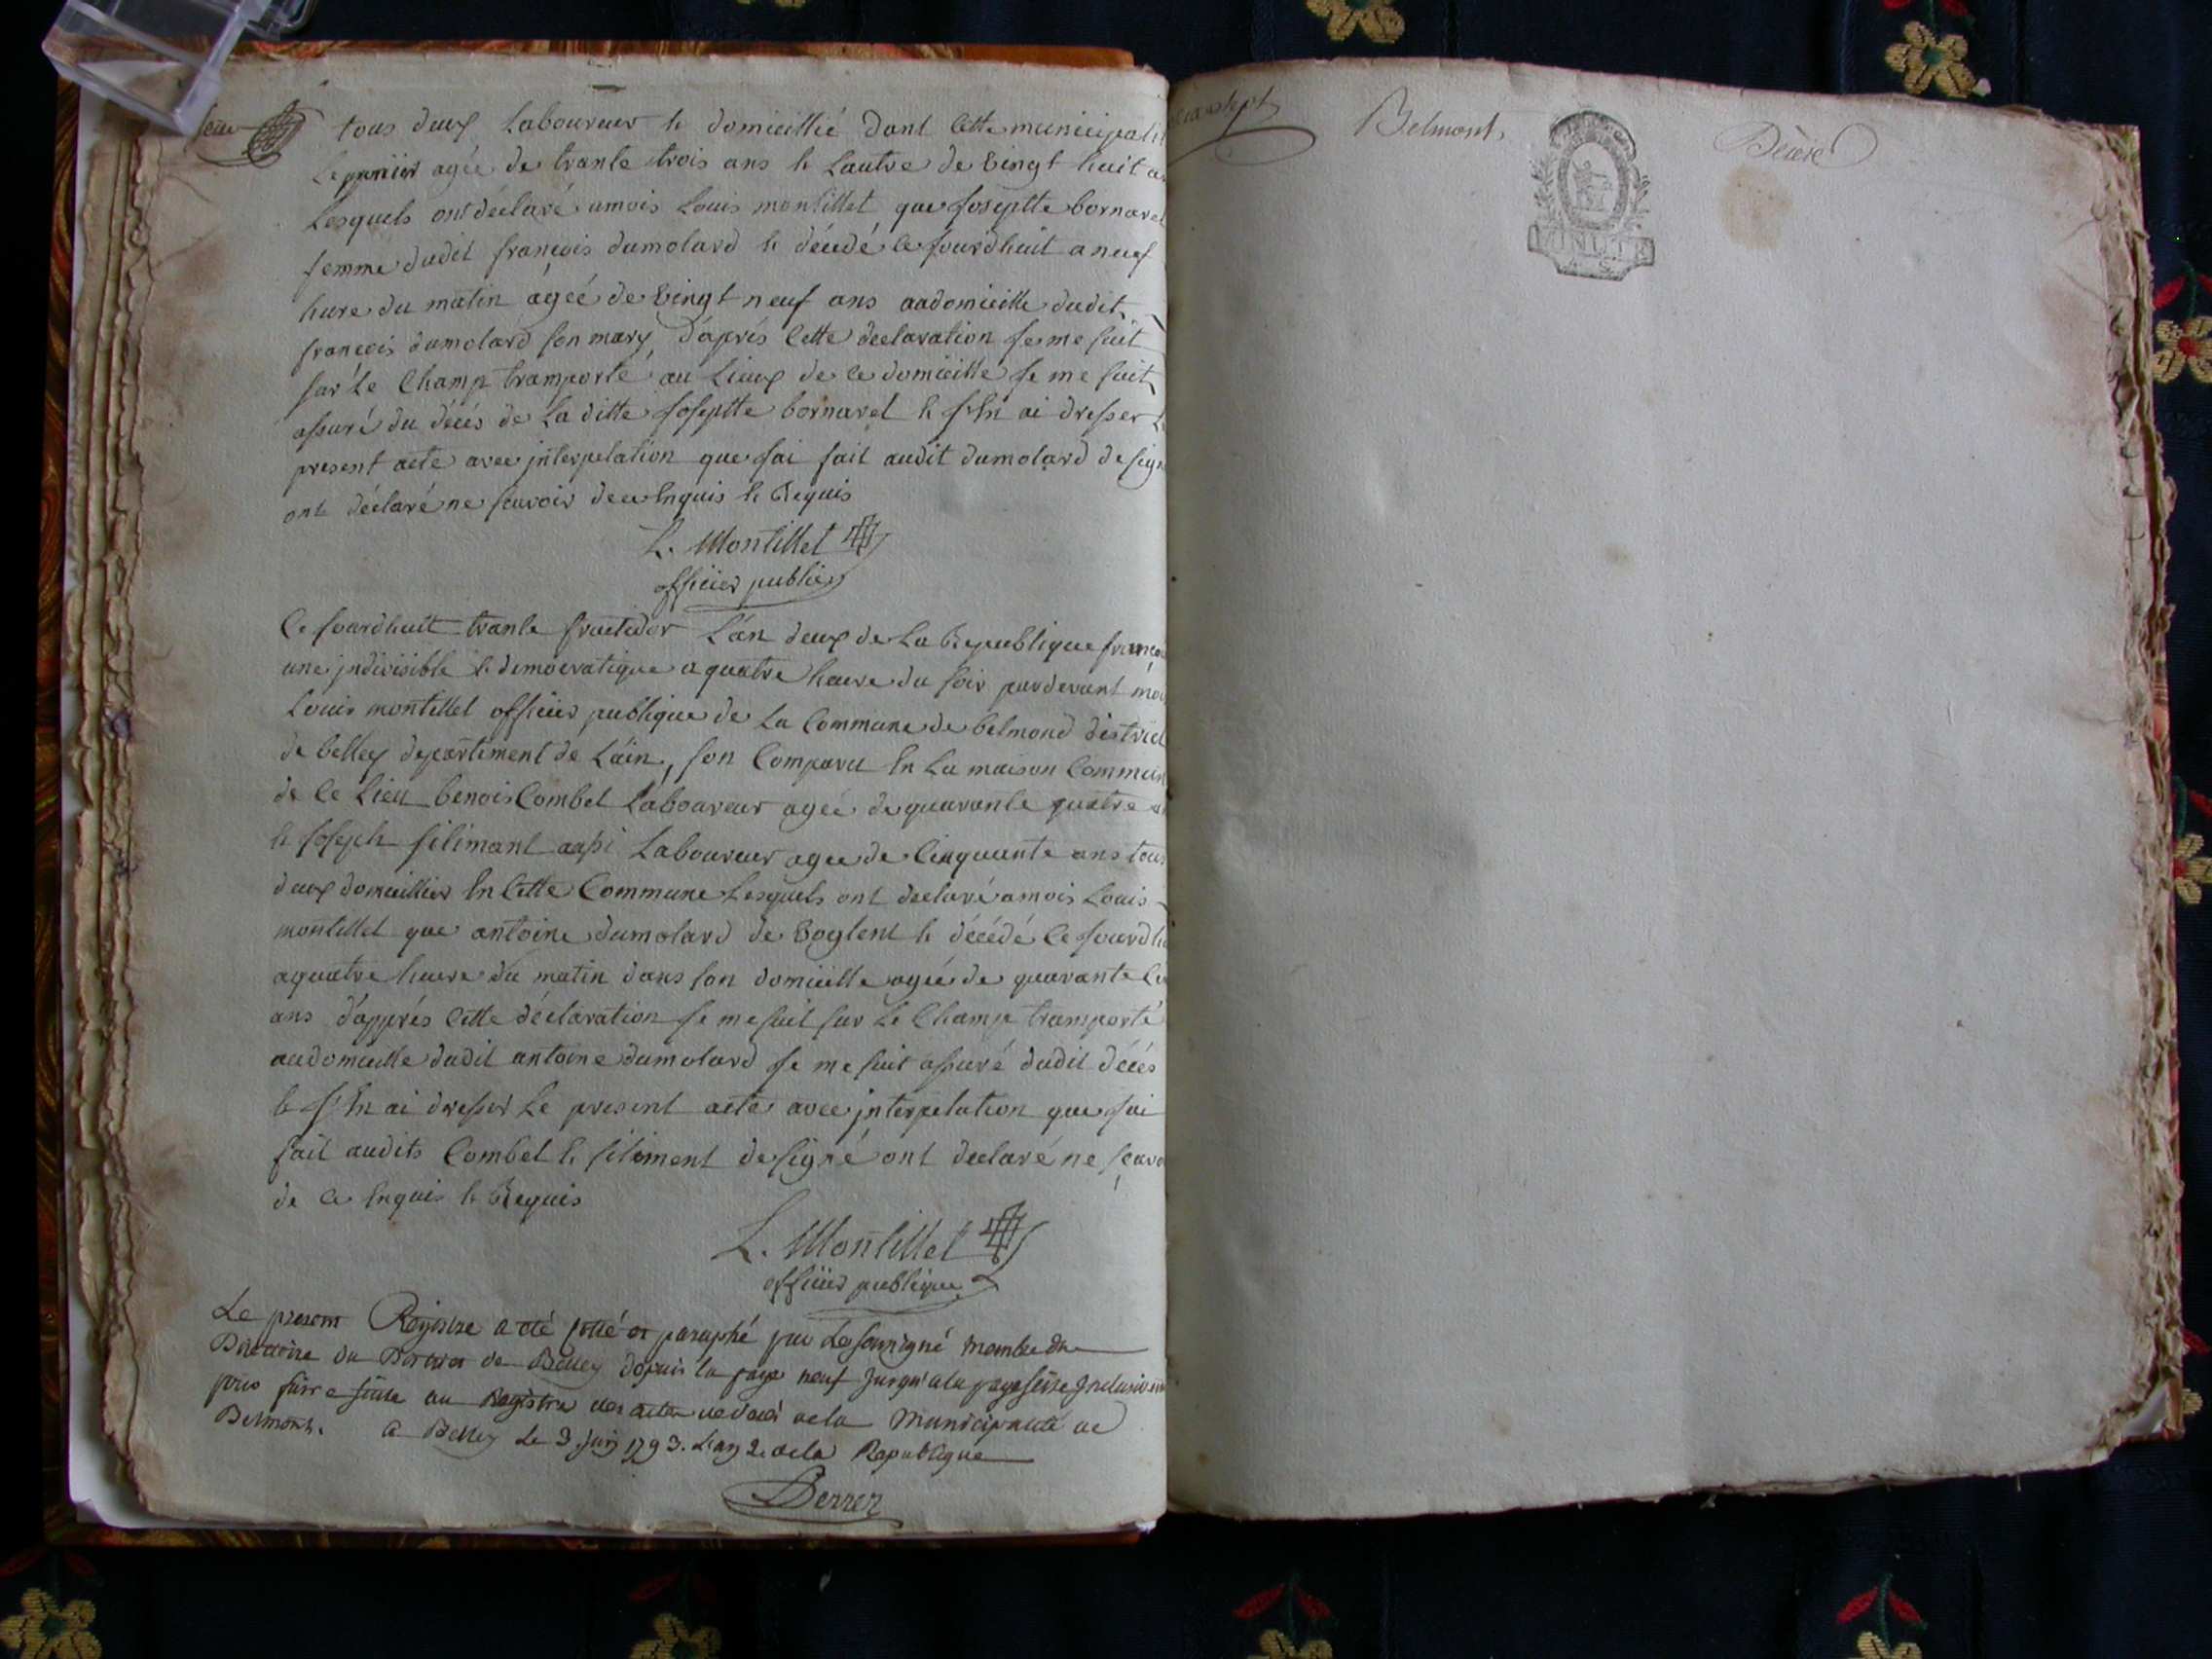 seize
tous deux Laboureur h domicillié dant Cette municipalit
Le premier ageé de trante trois ans h Lautre de vingt huit an
Lesquels ont déclaré amois Louis montillet que Joseptte bornarel
femme dudit françois dumolard h décédé ce Jourdhuit a neuf
hure du matin ageé de vingt neuf ans audomicille dudit
françois dumolard son mary, d'aprés Cette declaration Je me suit
sur Le Champ tramporté au Lieux de ce domicille Je me suit
assuré du décés de La ditte Joseptte bornarel h J'hn ai dresser Le
present acte avec jnterpelation que Jai fait audit dumolard de sign
ont déclaré ne scavoir de ce hnquis h Requis
L. Montillet
officier public
Ce Jourdhuit trante fructidor L'an deux de La Republique françai
une jndivisible h democratique a quatre heure du soir pardevant moi
Louis montillet officier publique de La Commune de belmond district
de belley departement de L'ain, son Comparu hn La maison Commun
de Ce Lieu benois Combet Laboureur ageé de quarante quatre an
h Joseph silimant aussi Laboureur agee de Cinquante ans tous
deux domicillier hn Cette Commune Lesquels ont declaré amois Louis
montillet que antoine dumolard de voglent h décédé Ce Jourdhu
aquatre heure du matin dans son domicille ageé de quarante
ans d'apprés Cette déclaration Je me suit sur Le Champ tramporté
audomicille dudit antoine dumolard Je me suit assuré dudit décés
h J'hn ai dresser Le present acte avec jnterpelation que Jai
fait audits Combet h siliment de signé ont declaré ne scavo
de Ce hnquis h Requis
L. Montillet
officier publique
Le present Registre a été cotté et paraphé par Le soussigné membre du
Directoire du District de Belley depuis la page neuf Jusqu'a la page seize Inclusivem
pour faire suite au Registre des actes de décés de la Municipalité de
Belmont. a Belley Le 3. Juin 1793. L'an 2. de la Republique
Berrer
dixsept
Belmont.
Décès
MINUTE
4 S